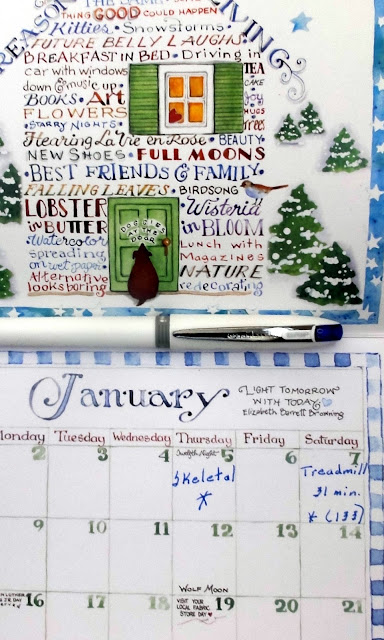 THING GOOD COULD HAPPEN
Kitties • Snowstorms
FUTURE BELLY LAUGHS
BREAKFAST IN BED • Driving in
car with windows
TEA
down & music up •
CAKE
BOOKS • Art
FLOWERS
HUGS
• STARRY NIGHTS •
Trees
Hearing La Vie en Rose • BEAUTY
NEW SHOES • FULL MOONS
• BEST FRIENDS & FAMILY
FALLING LEAVES • BIRDSONG
LOBSTER in BUTTER
Wisteria in BLOOM
DOGGIES AT THE DOOR
• Watercolor spreading on wet paper •
Lunch with Magazines
NATURE
Alternative looks boring
redecorating
January
LIGHT TOMORROW
WITH TODAY
Elizabeth Barrett Browning
Monday Tuesday Wednesday Thursday Friday Saturday
2 3 4 Twelfth Night 5 6 7
Skeletal
*
Treadmill
31 min.
* (133)
9 10 11 12 13 14
WOLF MOON
16 17 18 VISIT YOUR LOCAL FABRIC STORE DAY 19 20 21